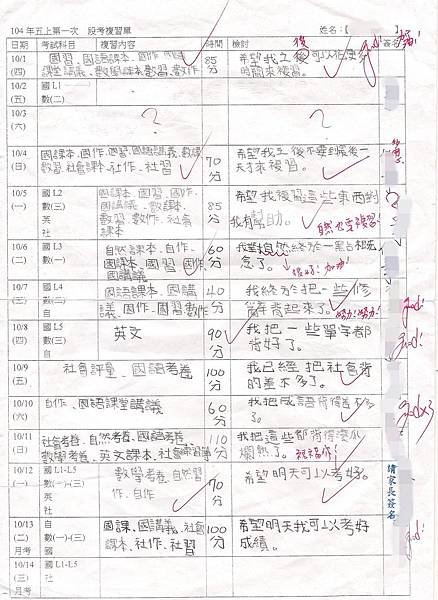 104 年五上第一次 段考複習單 姓名:【 】
日期 考試科目 複習內容 時間 檢討 簽名
10/1 (四) 國習、國語課本、國作 課堂講義、數學課本、數習、數作 85分 希望我之後可以 時間來複習。 good!
10/2 (五) 國 L1 數(二)
10/3 (六) ? ?
10/4 (日) 國課本、國作、國習、國語講義、數課 數習、社會課本、社作、社習 70分 希望我之後不要到最後一天才複習。
10/5 (一) 國 L2 數(三) 英 社 國課本、國習、國作、國講義、數課本、數習、數作、社會課本 85分 希望我複習這些東西對我有幫助。 自然也要複習!
10/6 (二) 國 L3 數(三) 自 自然課本、自作、國課本、國習、國作、國講義 60分 很好!加油!
10/7 (三) 國 L4 數(三) 國語課本、國講義、國作、國習、數作 40分 我終於把一些修 背起來了。 努力!努力! good!
10/8 (四) 國 L5 數(三) 自 英文 90分 我把一些單字都背好了。 good!
10/9 (五) 社會評量、國語考卷 100分 我已經把社會背的差不多了。
10/10 (六) 自作、國語課堂講義 60分 我把成語 多了。 good x3
10/11 (日) 社會考卷、自然考卷、國語考卷、數學考卷、英文課本、社會練習單 110分 我把這些都背得滾瓜爛熟了。
10/12 (一) 國 L1-L5 數(一)-(三) 英 社 數學考卷、自然習作、自作 70分 希望明天可以考好。
請家長簽名
10/13 (二) 月考 自 數(一)-(三) 國 國課、國講義、社會課本、社作、社習 100分 希望明天我可以考好成績。 good!
10/14 (三) 月考 國 L1-L5 社